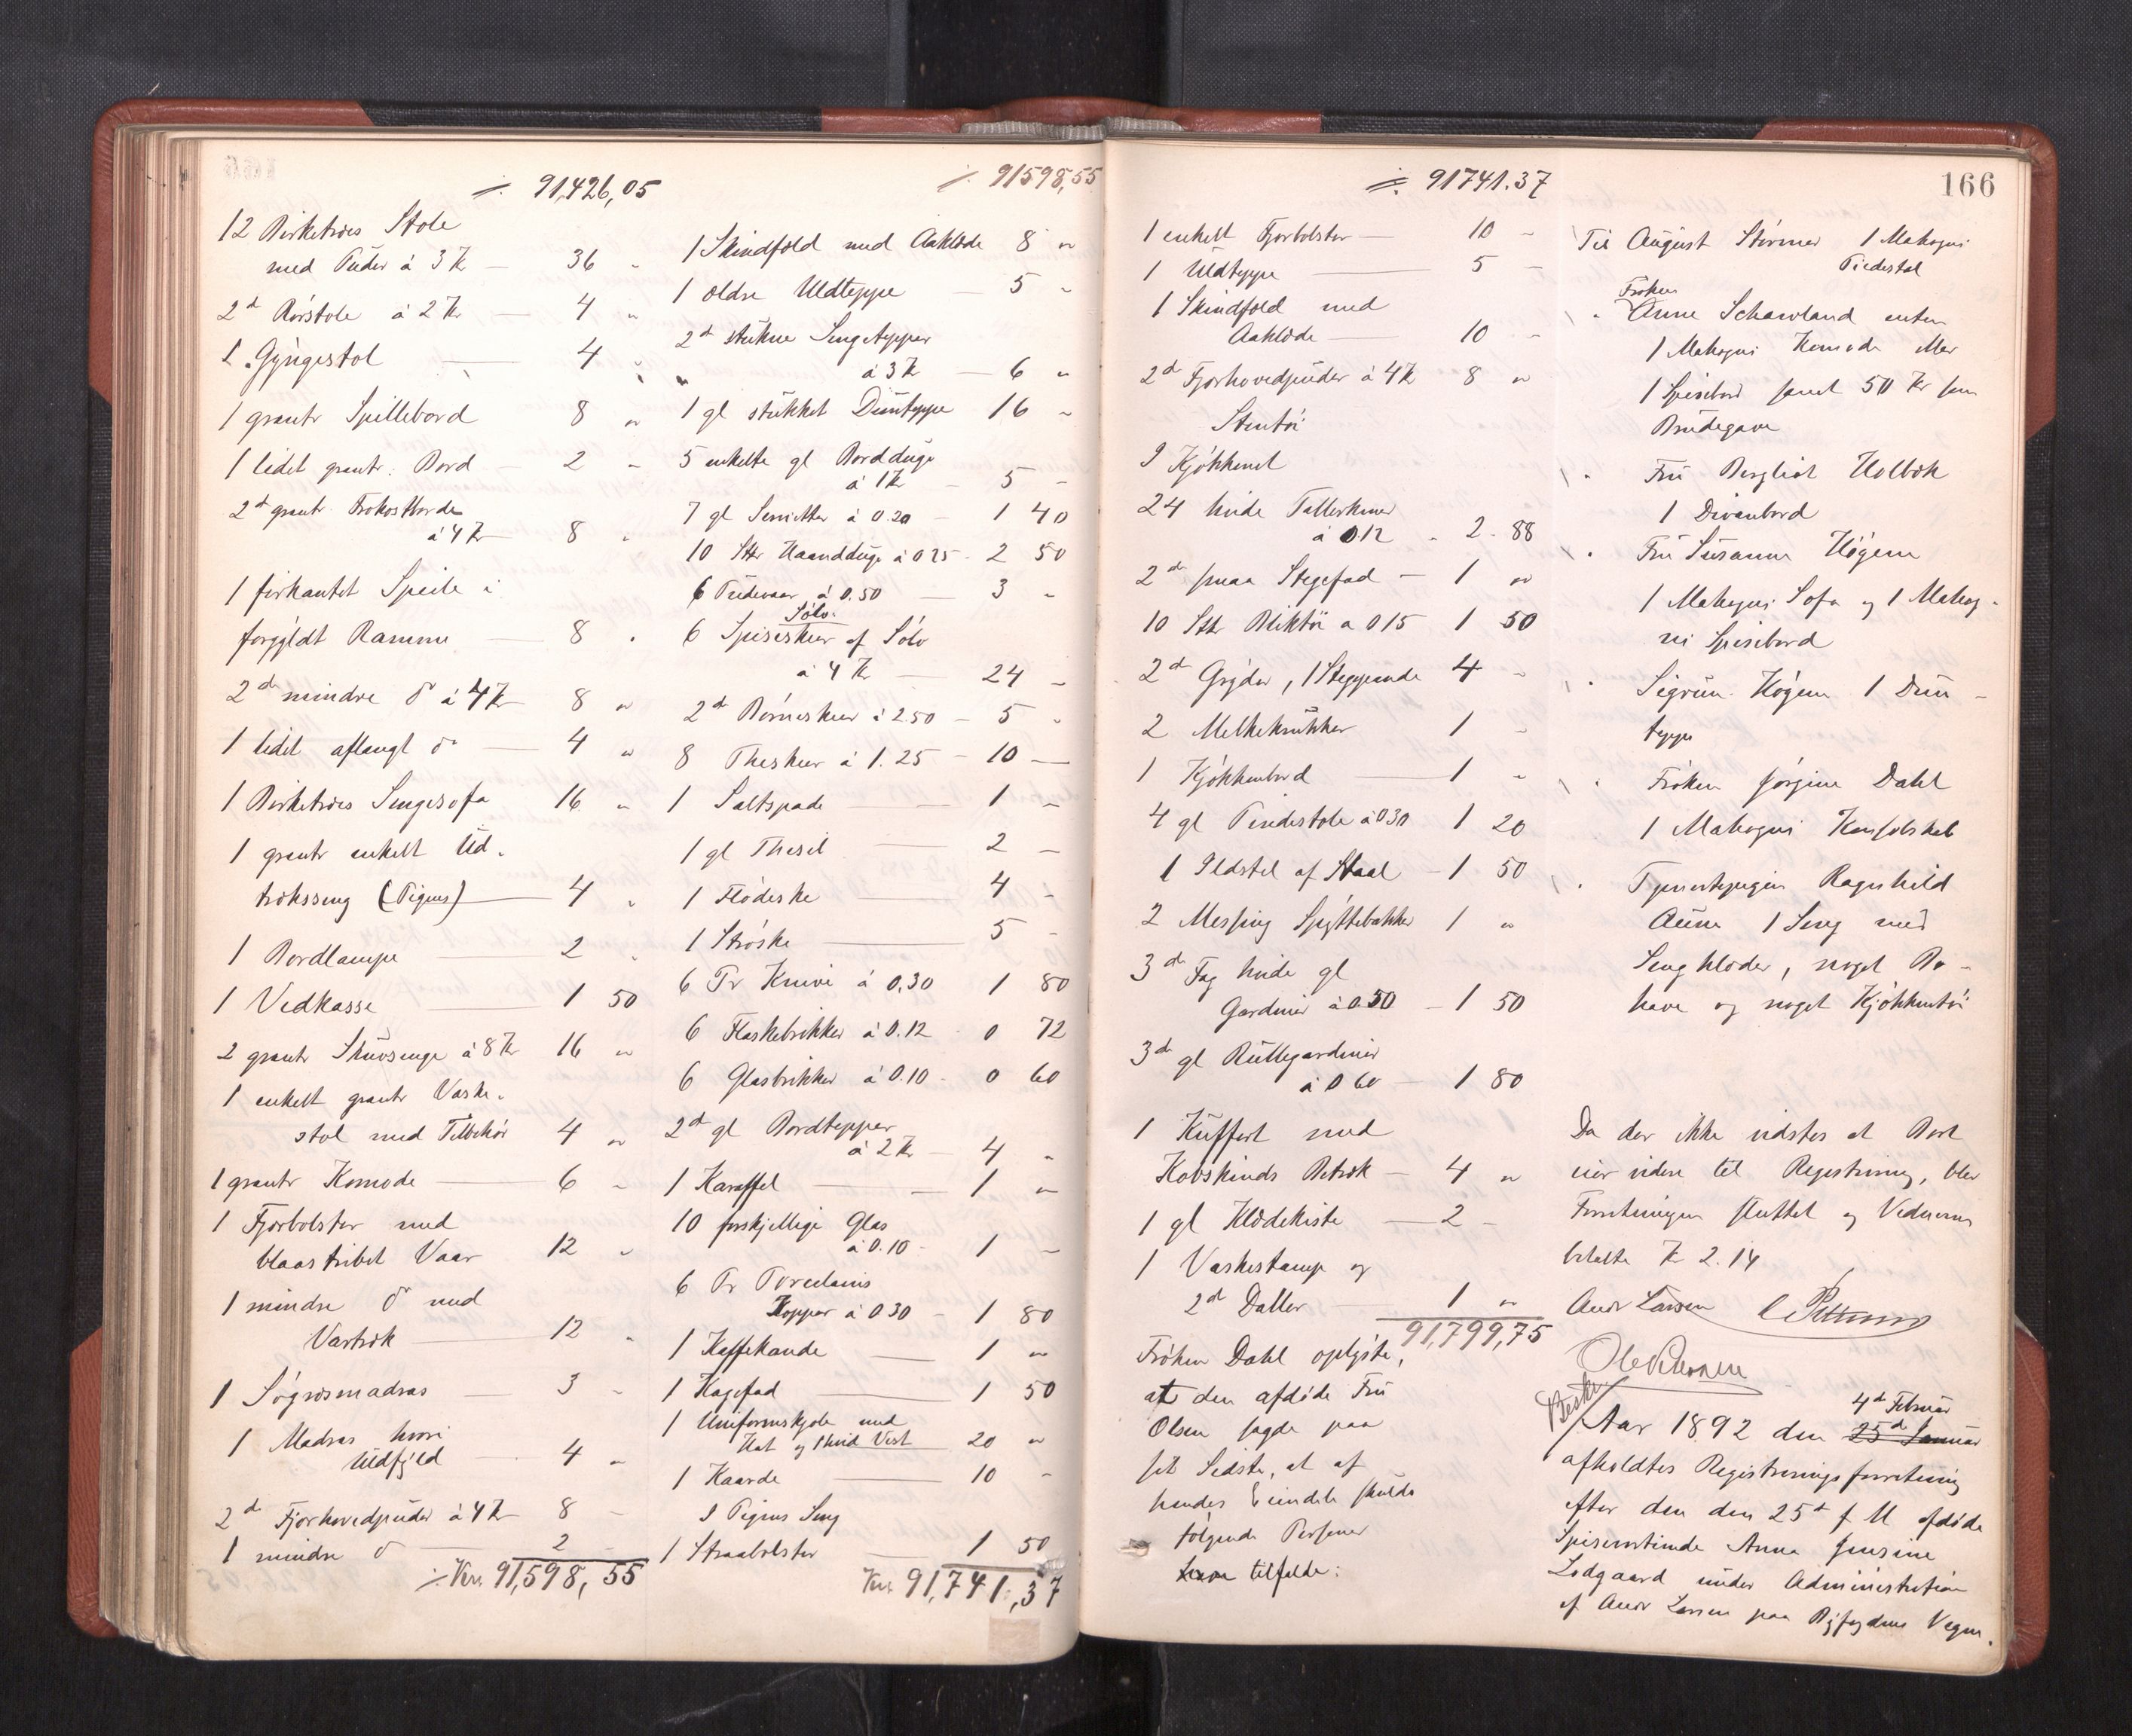 ⁒ 91,426,05
12 Birketræes Stole
med Puder à 3 Kr — 36 "
2de Rørstole à 2 Kr — 4 "
1 Gyngestol — 4 "
1 grantr Spillebord 8 "
1 lidet grantr. Bord 2 "
2de grantr Frokostborde
à 4 Kr 8 "
1 firkantet Speile i
forgyldt Ramme — 8 "
2de mindre do à 4 Kr 8 "
1 lidet aflangt do — 4 "
1 Birketræes Sengesofa 16 "
1 grantr enkelt Ud-
træksseng (Pigens) — 4 "
1 Bordlampe — 2 "
1 Vedkasse — 1 50
2 grantr Skuvsenge à 8 Kr 16 "
1 enkelt grantr Vaske-
stol med Tilbehör 4 "
1 grantr Komode — 6 "
1 Fjærbolster med
blaastribet Vaar 12 "
1 mindre do med
Vartræk — 12 "
1 Søgræsmadras — 3 "
1 Madras hvori
Uldfyld — 4 "
2de Fjærhovedpuder à 4 Kr 8 "
1 mindre do — 2 "
⁒ Kr. 91,598,55
⁒ 91598,55
1 Skindfæld med Aaklæde 8 "
1 ældre Uldteppe — 5 "
2de stukne Sengetepper
à 3 Kr — 6 "
1 gl stukket Dunteppe 16 "
5 enkelte gl Bordduge
à 1 Kr — 5 "
7 gl Servietter à 0.20 — 1 40
10 Stkr Haandduge à 0 25 - 2 50
6 Pudevaar à 0.50 — 3 "
Sølv.
6 Spiseskeer af Sølv
à 4 Kr — 24 "
2de Børneskeer à 2.50 — 5 "
8 Theskeer à 1.25 — 10 —
1 Saltspade — 1 "
1 gl Thesil — 2 —
1 Flödeske — 4 "
1 Ströske — 5 "
6 Pr Knive à 0,30 1 80
6 Flaskebrikker à 0.12 - 0 72
6 Glasbrikker à 0.10 - 0 60
2de gl Bordtepper
à 2 Kr — 4 "
1 Karaffel — 1 "
10 forskjellige Glas
à 0.10 - 1 "
6 Pr Porcelains
Kopper à 0 30 - 1 80
1 Kaffekande — 1 "
1 Kagefad — 1 50
1 Uniformskjole med
Hat og 1 hvid Vest 20 "
1 Kaarde — 10 "
I Pigens Seng
1 Straabolster — 1 50
Kr. 91,741,37
⁒ 91741.37
1 enkelt Fjærbolster — 10 "
1 Uldteppe — 5 "
1 Skindfæld med
Aaklæde — 10 "
2de Fjærhovedpuder à 4 Kr 8 "
Stentöi
I Kjökkenet
24 hvide Tallerkener
à 0.12 - 2 - 88
2de smaa Stegefad — 1 "
10 Stkr Bliktöi a 0 15 1 50
2de Gryder, 1 Stegepande 4 "
2 Melkekrukker 1 "
1 Kjökkenbord — 1 "
4 gl Pindestole à 0 30 1 20
1 Ildstel af Staal — 1 50
2 Messing Spyttebakker 1 "
3de Fag hvide gl
Gardiner à 0.50 — 1 50
3de gl Rullegardiner
à 0 60 — 1 80
1 Kuffert med
Kobskinds Betræk — 4 "
1 gl Klædekiste — 2 -
1 Vaskestamp og
2de Daller — 1 "
91,799,75
Fröken Dahl oplyste,
at den afdöde Fru
Olsen sagde paa
sit Sidste, at af
hendes Eiendele skulde
følgende Personer
tilfalde:
166
Til August Störmer 1 Mahogni
Piedestal
Fröken
" Anne Schawland enten
1 Mahogni Komode eller
1 Spisebord samt 50 Kr som
Brudegave
" Fru Bergliot Holbæk
1 Divanbord
" Fru Susanne Høgem
1 Mahogni Sofa og 1 Mahog-
ni Spisebord
" Sigrun Høgem 1 Dun-
teppe
" Fröken Jörgine Dahl
1 Mahogni Konsolskab
" Tjenestepigen Ragnhild
Aune 1 Seng med
Sengklæder, noget Bo-
have og noget Kjökkentöi
Da der ikke vidstes at Bort
vær videre til Registrering, blev
Forretningen sluttet og Vidnerne
betalte Kr 2.14
Andr Larsen C Petterson
Ole Petersen
Aar 1892 den 25de Januar 4de Februar
afholdtes Registreringsforretning
efter den den 25de f. M. afdöde
Spiseværtinde Anna Jensine
Lodgaard under Administration
af Andr Larsen paa Byfogdens Vegne.